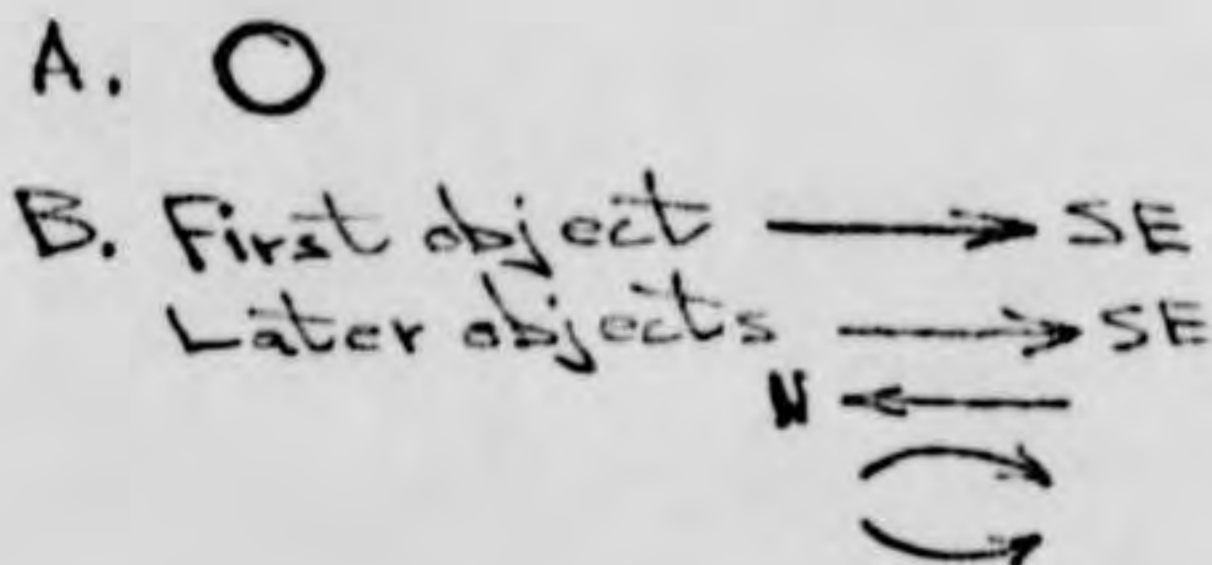 A.
B. First object SE
Later objects SE
N